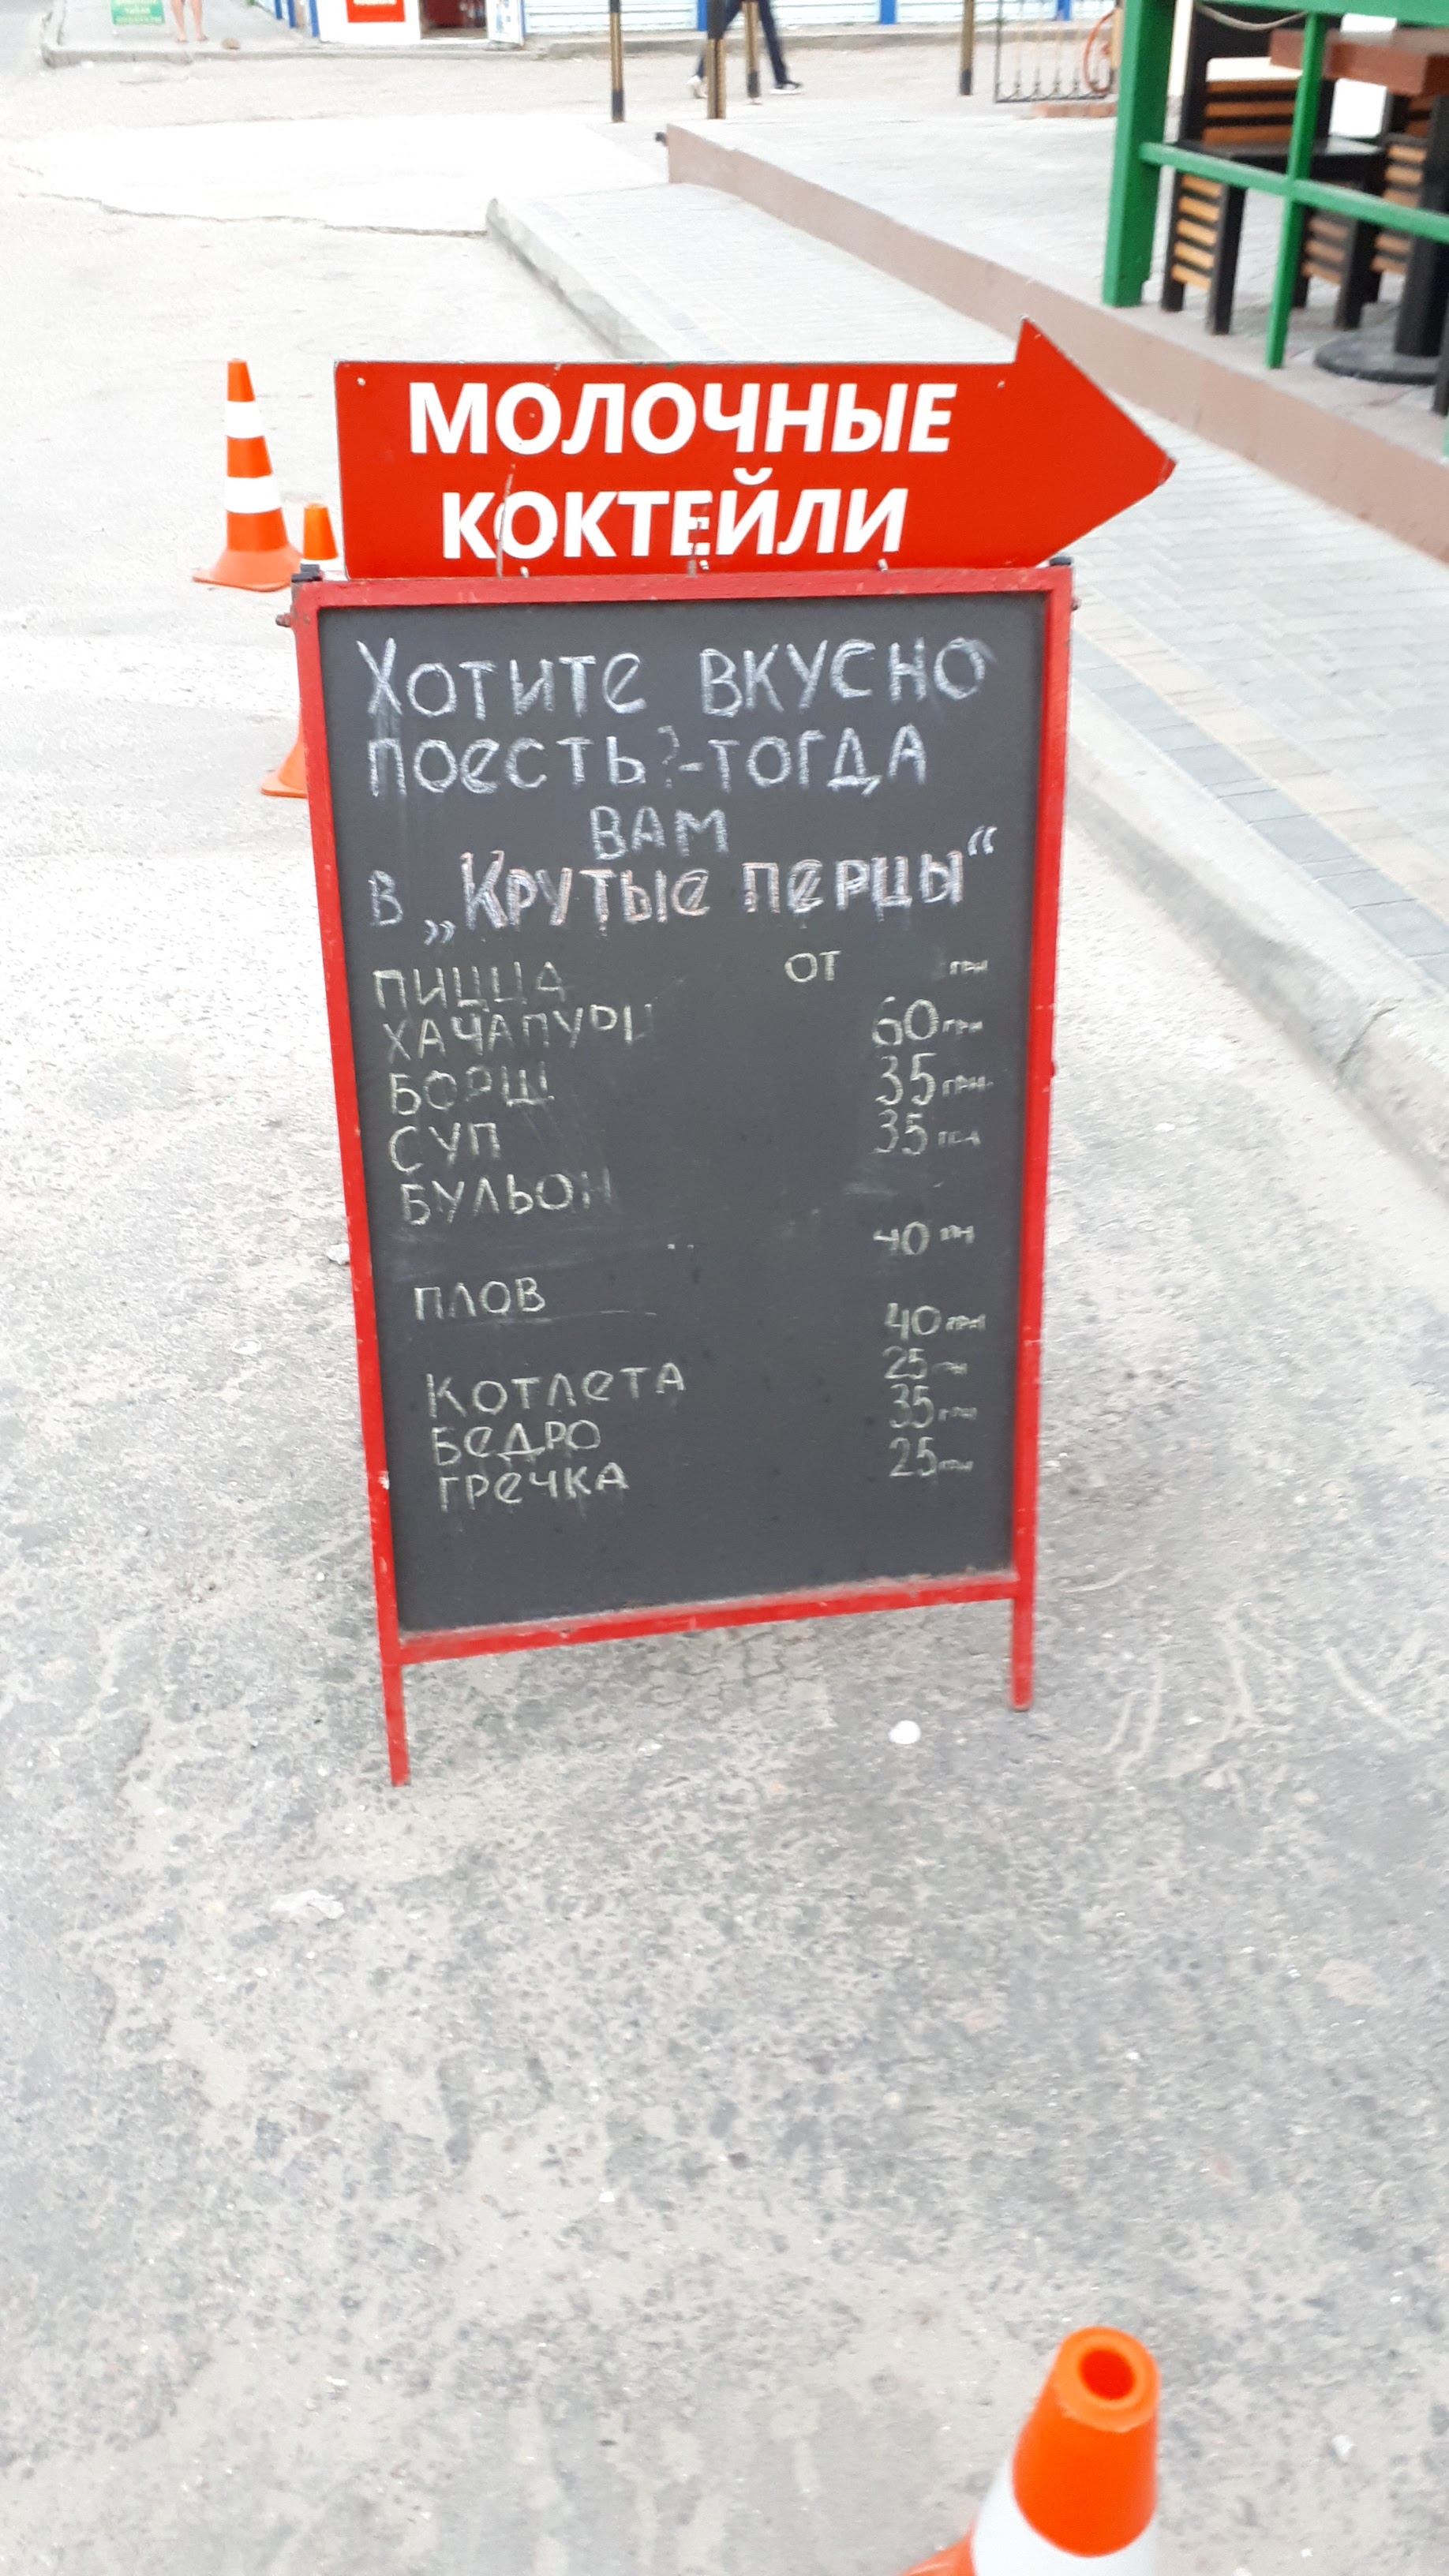 МОЛОЧНЫЕ
КОКТЕЙЛИ
Хотите вкусно
поесть?-тогда
вам
в „Крутые перцы“
ПИЦЦА ОТ грн
ХАЧАПУРИ 60 грн
БОРЩ 35 грн.
СУП 35
БУЛЬОН
40
ПЛОВ
40 грн
КОТЛЕТА 25
БЕДРО 35 грн
ГРЕЧКА 25